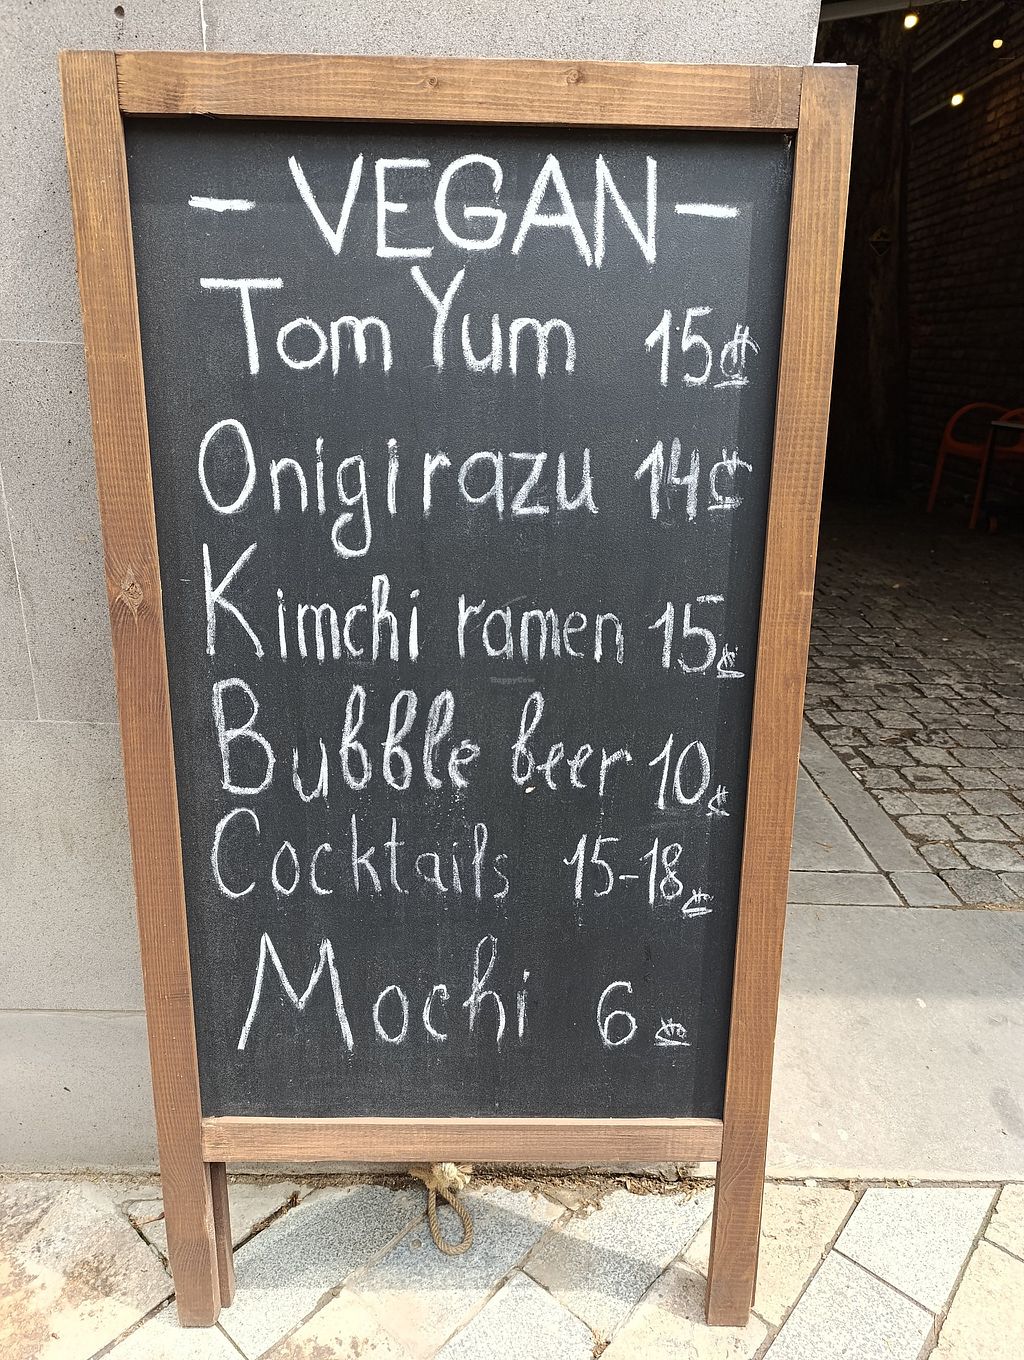 - VEGAN -
Tom Yum 15₾
Onigirazu 14₾
Kimchi ramen 15₾
Bubble beer 10₾
Cocktails 15-18₾
Mochi 6₾
HappyCow